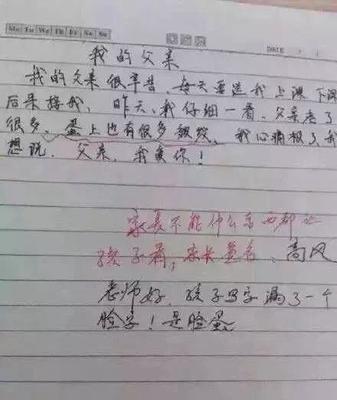 Mo Tu We Th Fr Sa Su
DATE / /
我的父亲
我的父亲很辛苦,每天要送我上课,下课
后来接我。昨天,我仔细一看,父亲老了
很多,蛋上也有很多皱纹,我心痛极了,我
想说,父亲,我爱你!
家长不能什么东西都让
孩子看,家长签名:高风
老师好,孩子写字漏了一个
脸字!是脸蛋